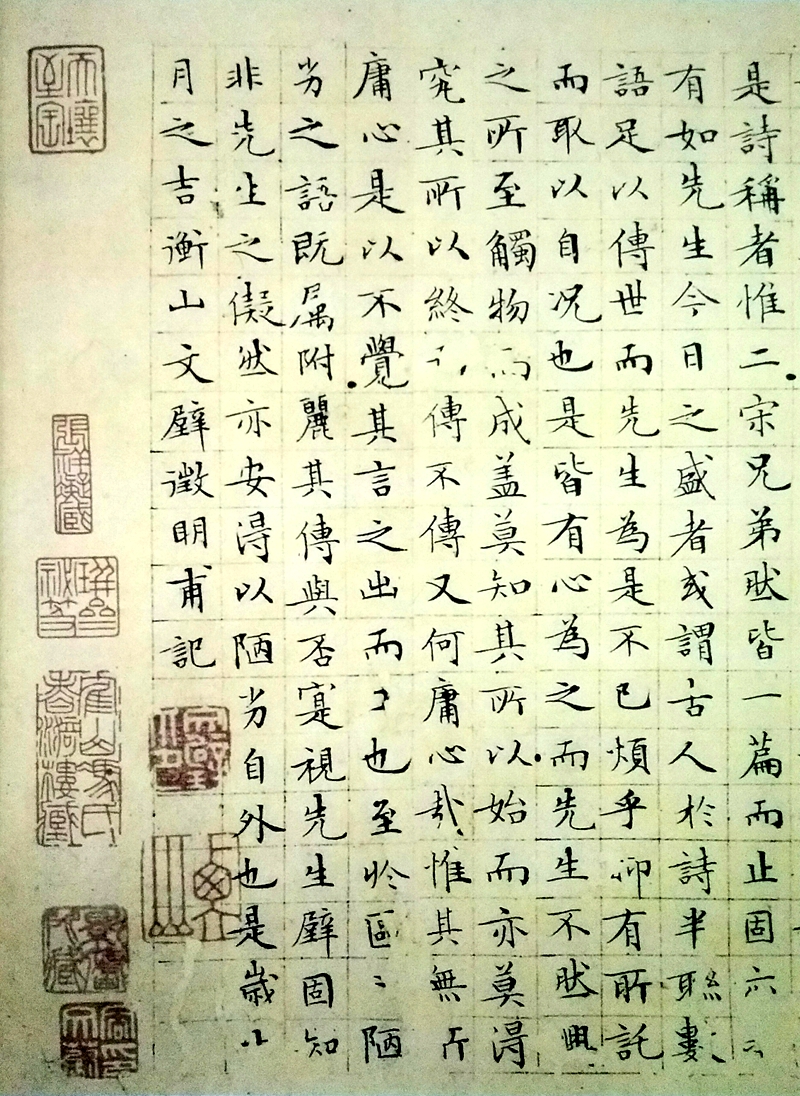 是詩稱者惟二宋兄弟然皆一篇而止固
有如先生今日之盛者或謂古人於詩半聯數
語足以傳世而先生為是不已煩乎抑有所託
而取以自况也是皆有心為之而先生不然興
之所至觸物而成盖莫知其所以始而亦莫得
究其所以終傳不傳又何庸心哉惟其無所
庸心是以不覺其言之出而工也至於區〻陋
劣之語既属附麗其傳與否寔視先生璧固知
非先生之儗然亦安得以陋劣自外也是歲八
月之吉衡山文璧徵明甫記